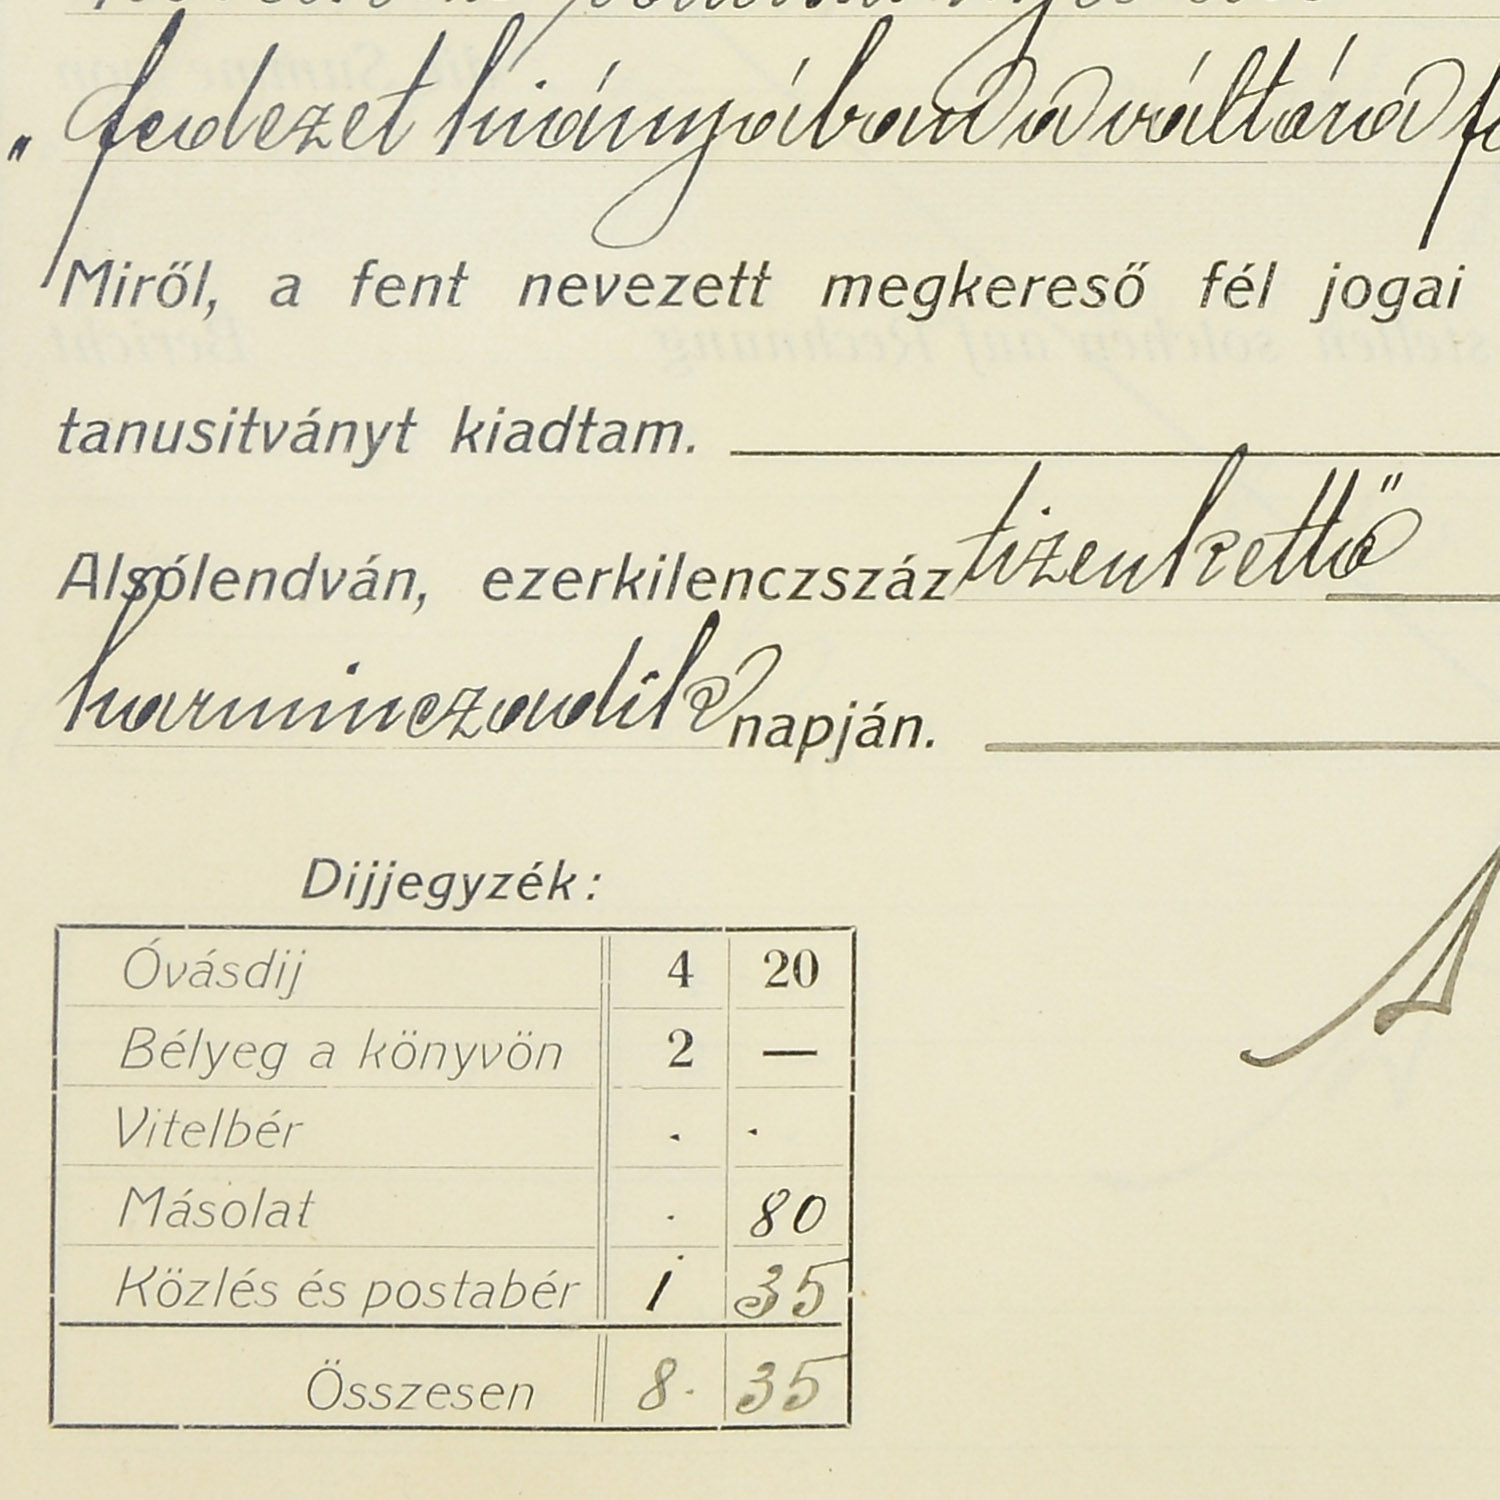 „fedezet hiányában a váltóra
Miről, a fent nevezett megkereső fél jogai
tanusitványt kiadtam.
Alsólendván, ezerkilenczszáz tizenkettő
harminczadik napján.
Dijjegyzék:
Óvásdij 4 20
Bélyeg a könyvön 2 —
Vitelbér . .
Másolat . 80
Közlés és postabér 1 35
Összesen 8. 35